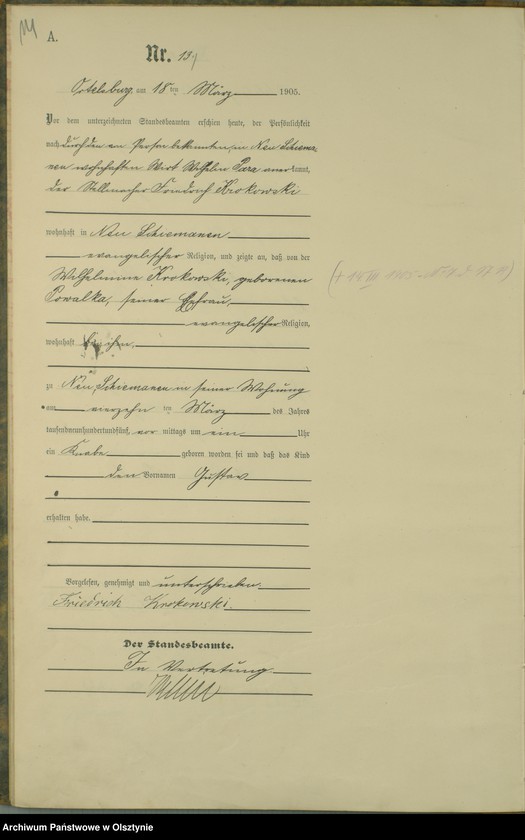 A.
Nr. 137
Ortelsburg, am 18 ten März 1905.
Vor dem unterzeichneten Standesbeamten erschien heute, der Persönlichkeit
nach durch den von Person bekannten, in Neu Schiema-
nen wohnhaften Wirt Wilhelm Para anerkannt,
der Stellmacher Friedrich Krokowski
wohnhaft in Neu Schiemanen
evangelischer Religion, und zeigte an, daß von der
Wilhelmine Krokowski, geborenen
Powalka, seiner Ehefrau,
evangelischer Religion,
wohnhaft bei ihm,
zu Neu Schiemanen in seiner Wohnung
am vierzehn ten März des Jahres
tausendneunhundertundfünf, vor mittags um ein Uhr
ein Knabe geboren worden sei und daß das Kind
den Vornamen Gustav
erhalten habe.
Vorgelesen, genehmigt und unterschrieben.
Friedrich Krokowski.
Der Standesbeamte.
In Vertretung
Archiwum Państwowe w Olsztynie